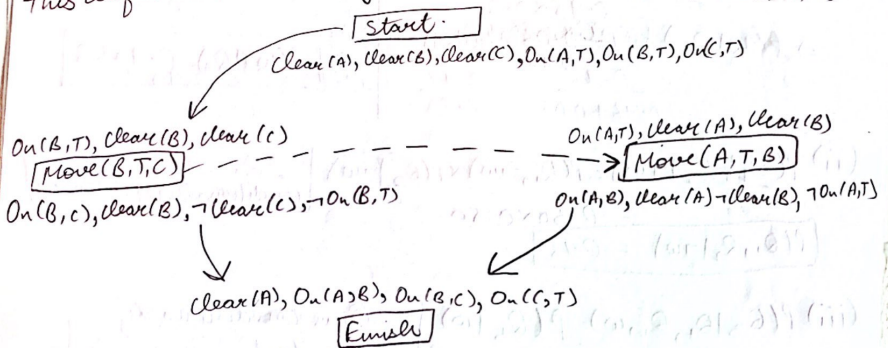 This
Start.
Clear(A), Clear(B), Clear(C), On(A,T), On(B,T), On(C,T)
On(B,T), Clear(B), Clear(C)
Move(B,T,C)
On(B,C), Clear(B), ¬Clear(C), ¬On(B,T)
On(A,T), Clear(A), Clear(B)
Move(A,T,B)
On(A,B), Clear(A) ¬Clear(B), ¬On(A,T)
Clear(A), On(A,B), On(B,C), On(C,T)
Finish